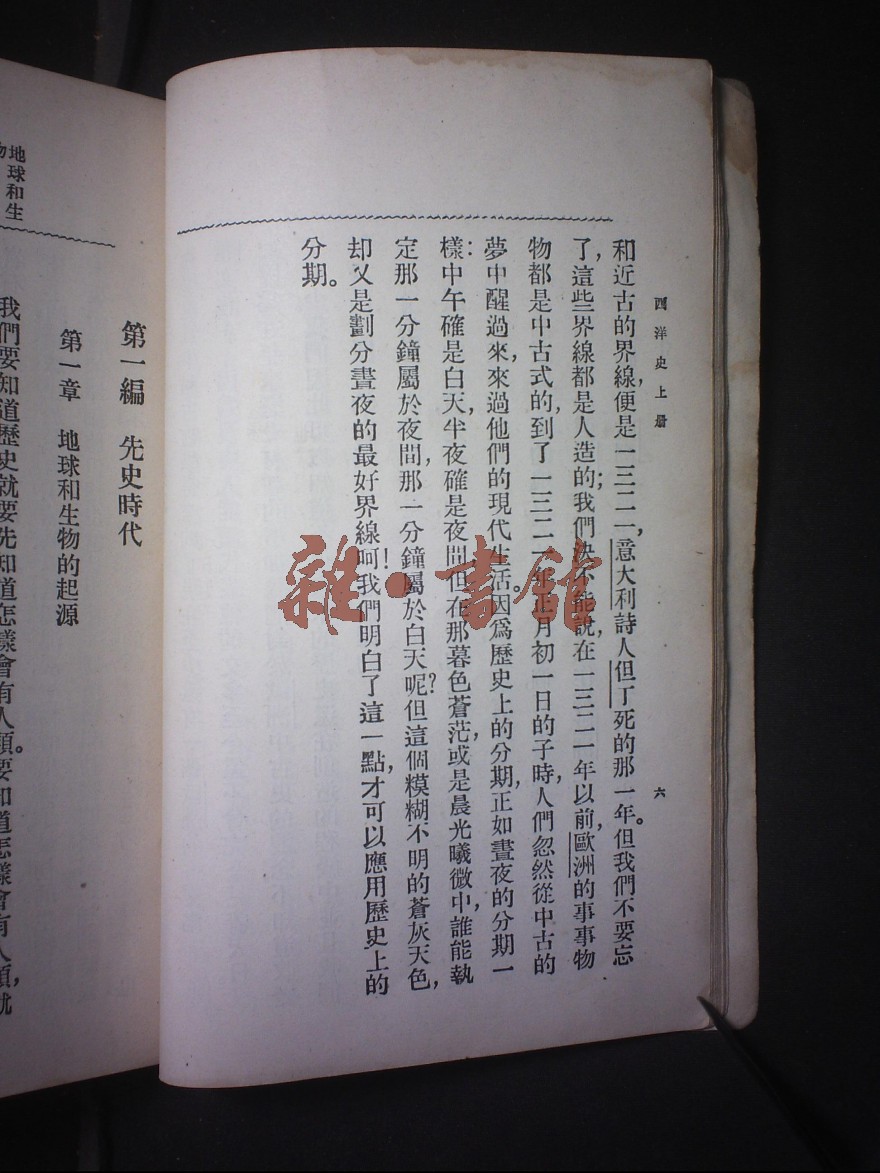 西洋史上册
六
和近古的界線,便是一三二一,意大利詩人但丁死的那一年。但我們不要忘
了,這些界線都是人造的;我們決不能說,在一三二一年以前,歐洲的事事物
物都是中古式的,到了一三二一年正月初一日的子時,人們忽然從中古的
夢中醒過來,來過他們的現代生活。因爲歷史上的分期,正如晝夜的分期一
樣:中午確是白天,半夜確是夜間,但在那暮色蒼茫,或是晨光曦微中,誰能執
定那一分鐘屬於夜間,那一分鐘屬於白天呢?但這個糢糊不明的蒼灰天色,
却又是劃分晝夜的最好界線呵!我們明白了這一點,才可以應用歷史上的
分期。
雜·書館
第一編 先史時代
第一章 地球和生物的起源
地球和生
我們要知道歷史就要先知道怎樣會有人類。要知道怎樣會有人類,就